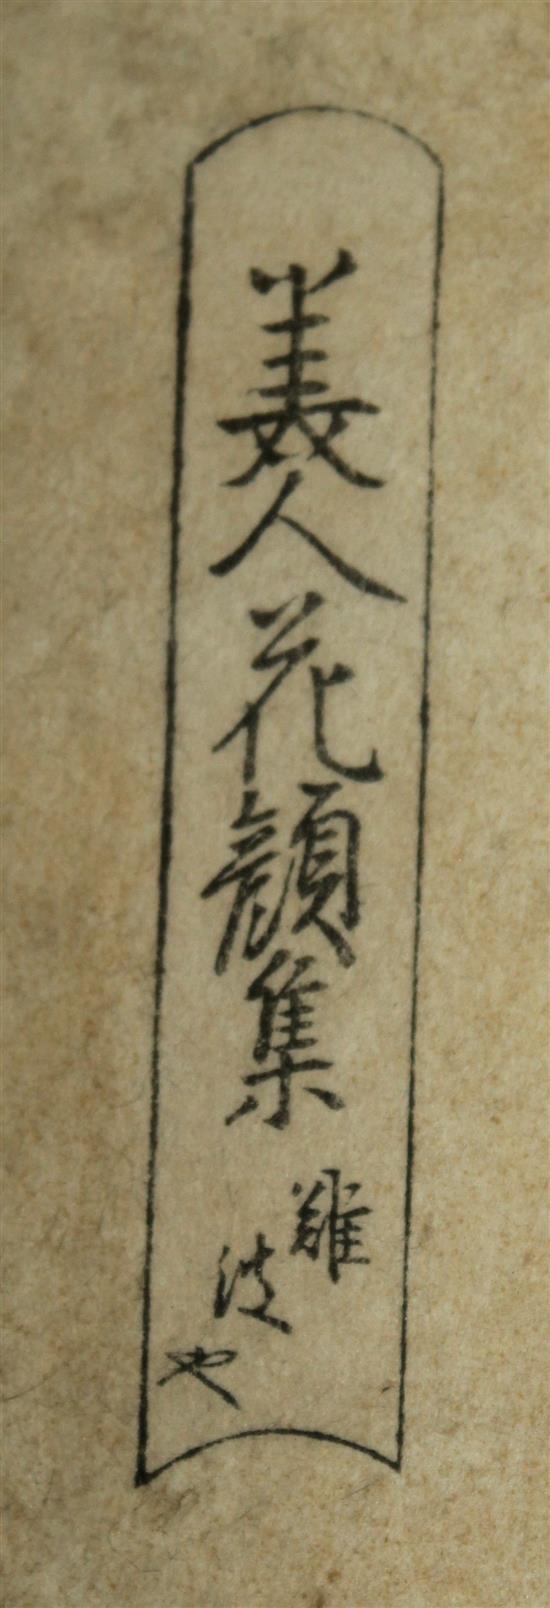 美人花顔集
難波や